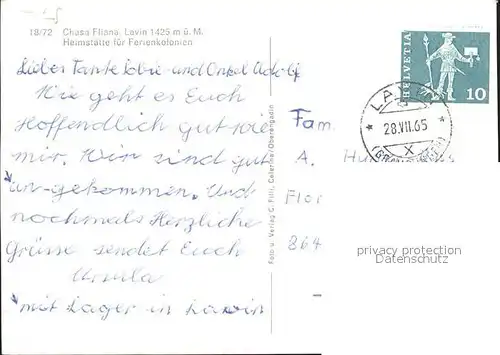 18/72 Chasa Fliana, Lavin 1425 m ü. M.
Heimstätte für Ferienkolonien
Liebe Tante und Onkel
Wie geht es Euch
Hoffendlich gut wie
mir. Wir sind gut
an-gekommen. Und
nochmals Herzliche
Grüsse sendet Euch
Ursula
mit Lager in Lavin
Foto u. Verlag C. Filli, Celerina/Oberengadin
HELVETIA
10
28.VII.65
X
Fam.
A.
Flor
864
privacy protection
Datenschutz